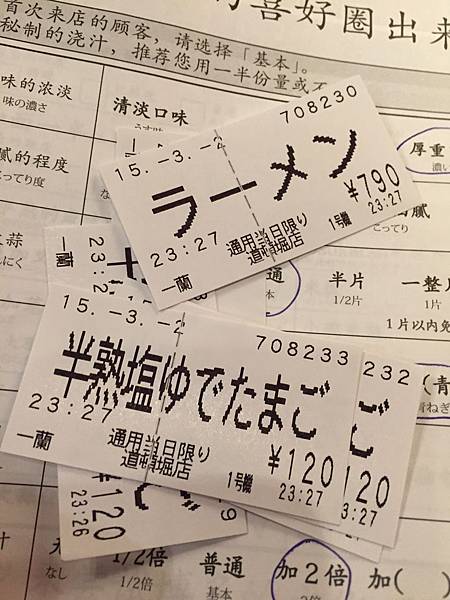 喜好圈出来
首次来店的顾客，请选择「基本」。
秘制的浇汁，推荐您用一半份量或不
味的浓淡
味の濃さ
清淡口味
うす味
腻的程度
こってり度
厚重
こってり
にんにく
基本
半片
1/2片
一整片
1片
1片以内免
708230
15.-3.-2
ラーメン
¥790
23:27
通用当日限り
道頓堀店
1号機
23:27
一蘭
一蘭
23:2
15.-3.-2
708233
半熟塩ゆでたまご
23:27
通用当日限り
道頓堀店
¥120
1号機
23:27
一蘭
232
ご
120
23:27
¥120
23:26
9
青ねぎ
なし
1/2倍
1/2倍
普通
基本
加2倍
2倍
加(　)